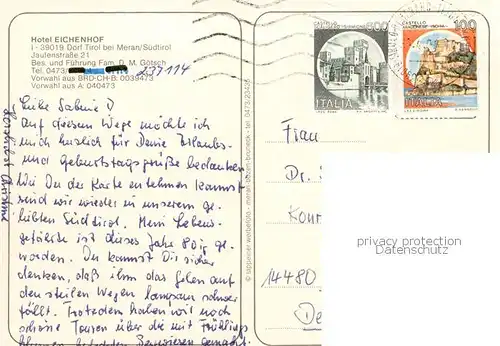 Hotel EICHENHOF
I - 39019 Dorf Tirol bei Meran/Südtirol
Jaufenstraße 21
Bes. und Führung Fam. D. M. Götsch
Tel. 0473/
237114
Vorwahl aus BRD-CH-B: 0039473
Vorwahl aus A: 040473
Liebe Sabine
Auf diesem Wege möchte ich
mich herzlich für Deine Urlaubs-
und Geburtstagsgrüße bedanken
Wie Du der Karte entnehmen kannst
sind wir wieder in unserem ge-
liebten Südtirol. Mein Lebens-
gefährte ist dieses Jahr 80ig ge-
worden. Du kannst Dir sicher
denken, daß ihm das Gehen auf
den steilen Wegen langsam schwer
fällt. Trotzdem haben wir noch
schöne Touren über die mit Frühlings
blumen bedeckten Bergwiesen gemacht.
Herzlichst
500
ITALIA
CASTELLO
100
Frau
Dr.
14480
De
privacy protection
Datenschutz